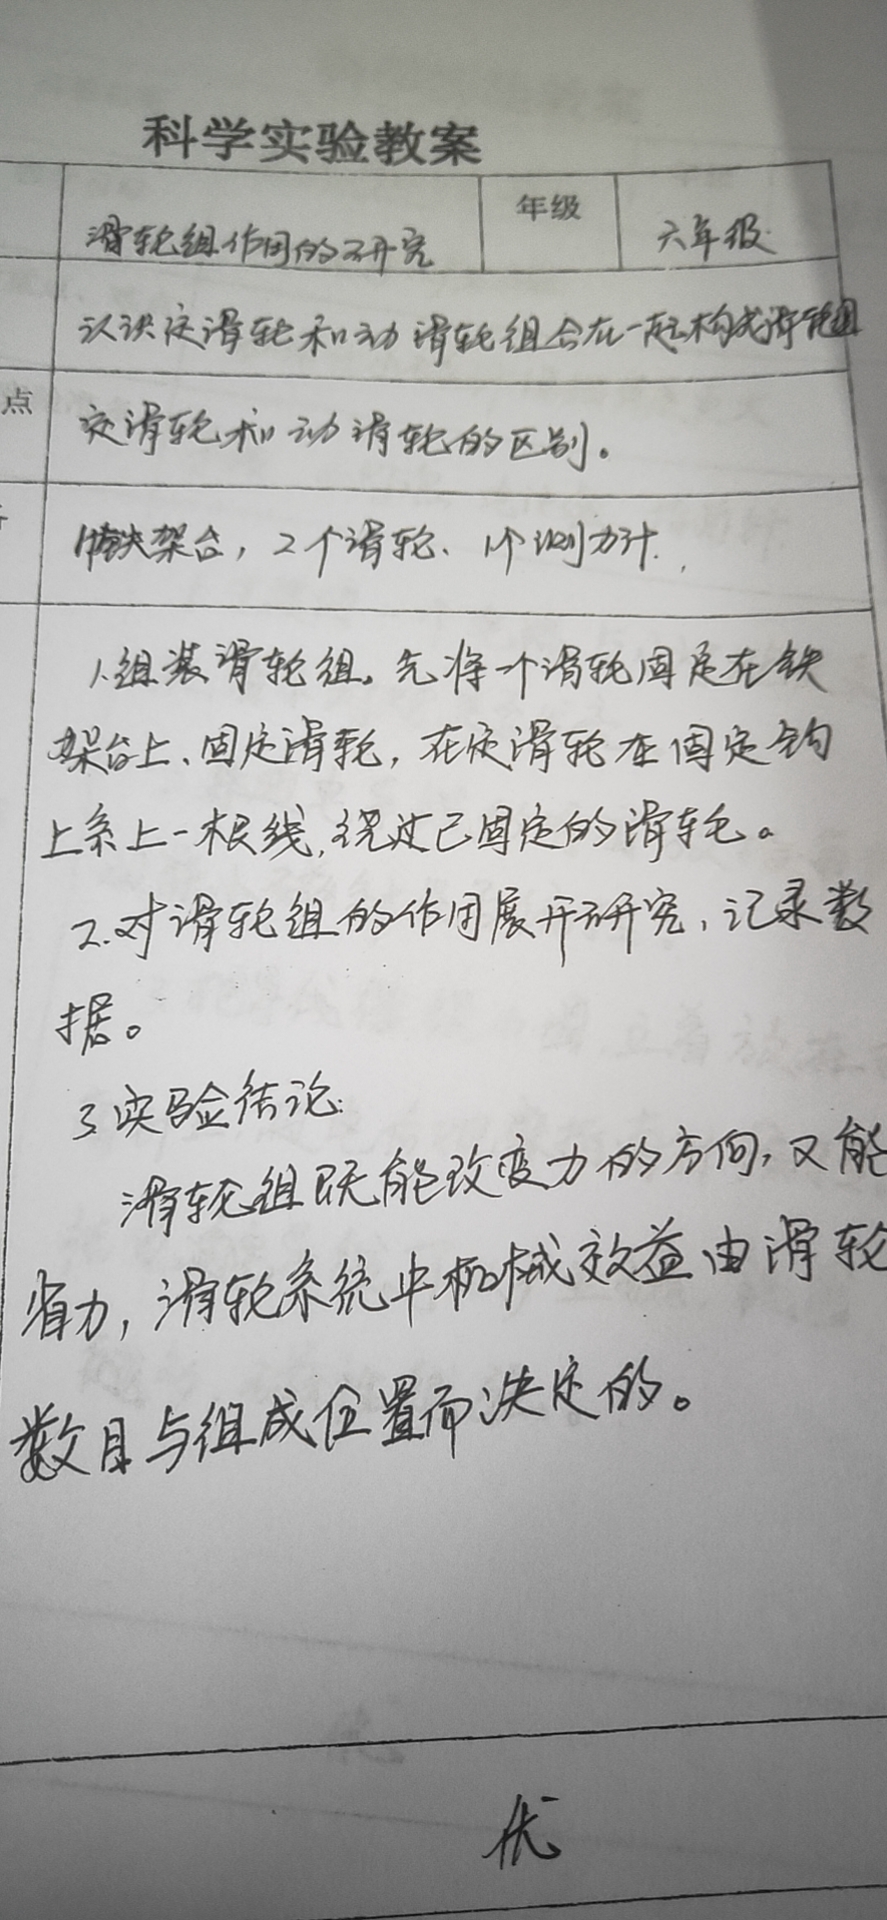 科学实验教案
滑轮组作用的研究 年级 六年级
认识定滑轮和动滑轮组合在一起构成滑轮组
点 定滑轮和动滑轮的区别。
铁架台，2个滑轮、1个测力计.
1.组装滑轮组。先将一个滑轮固定在铁
架台上、固定滑轮，在定滑轮在固定钩
上系上一根线，绕过已固定的滑轮。
2.对滑轮组的作用展开研究，记录数
据。
3.实验结论:
滑轮组既能改变力的方向，又能
省力，滑轮系统中机械效益由滑轮
数目与组成位置而决定的。
优